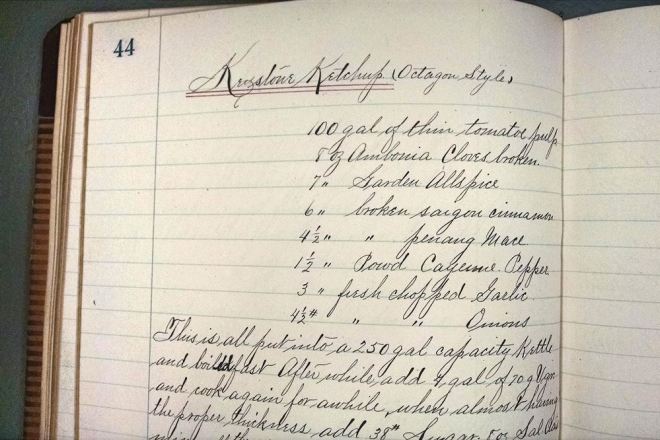 44
Keystone Ketchup (Octagon Style)
100 gal of thin tomatoe pulp
8 oz Ambonia Cloves broken.
7 " Garden Allspice
6 " broken saigon cinnamon
4 1/2 " " penang Mace
1 1/2 " Powd Cayenne Pepper
3 " fresh chopped Garlic
4 1/2 # " " Onions
This is all put into a 250 gal capacity Kettle
and boiled fast After while add 9 gal of 70 g Vgr.
and cook again for awhile, when almost having
the proper thickness add 38 # Sugar 5 oz Sal